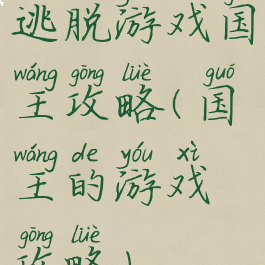 逃脱游戏国
wáng gōng lüè guó
王攻略(国
wáng de yóu xì
王的游戏
gōng lüè
攻略)